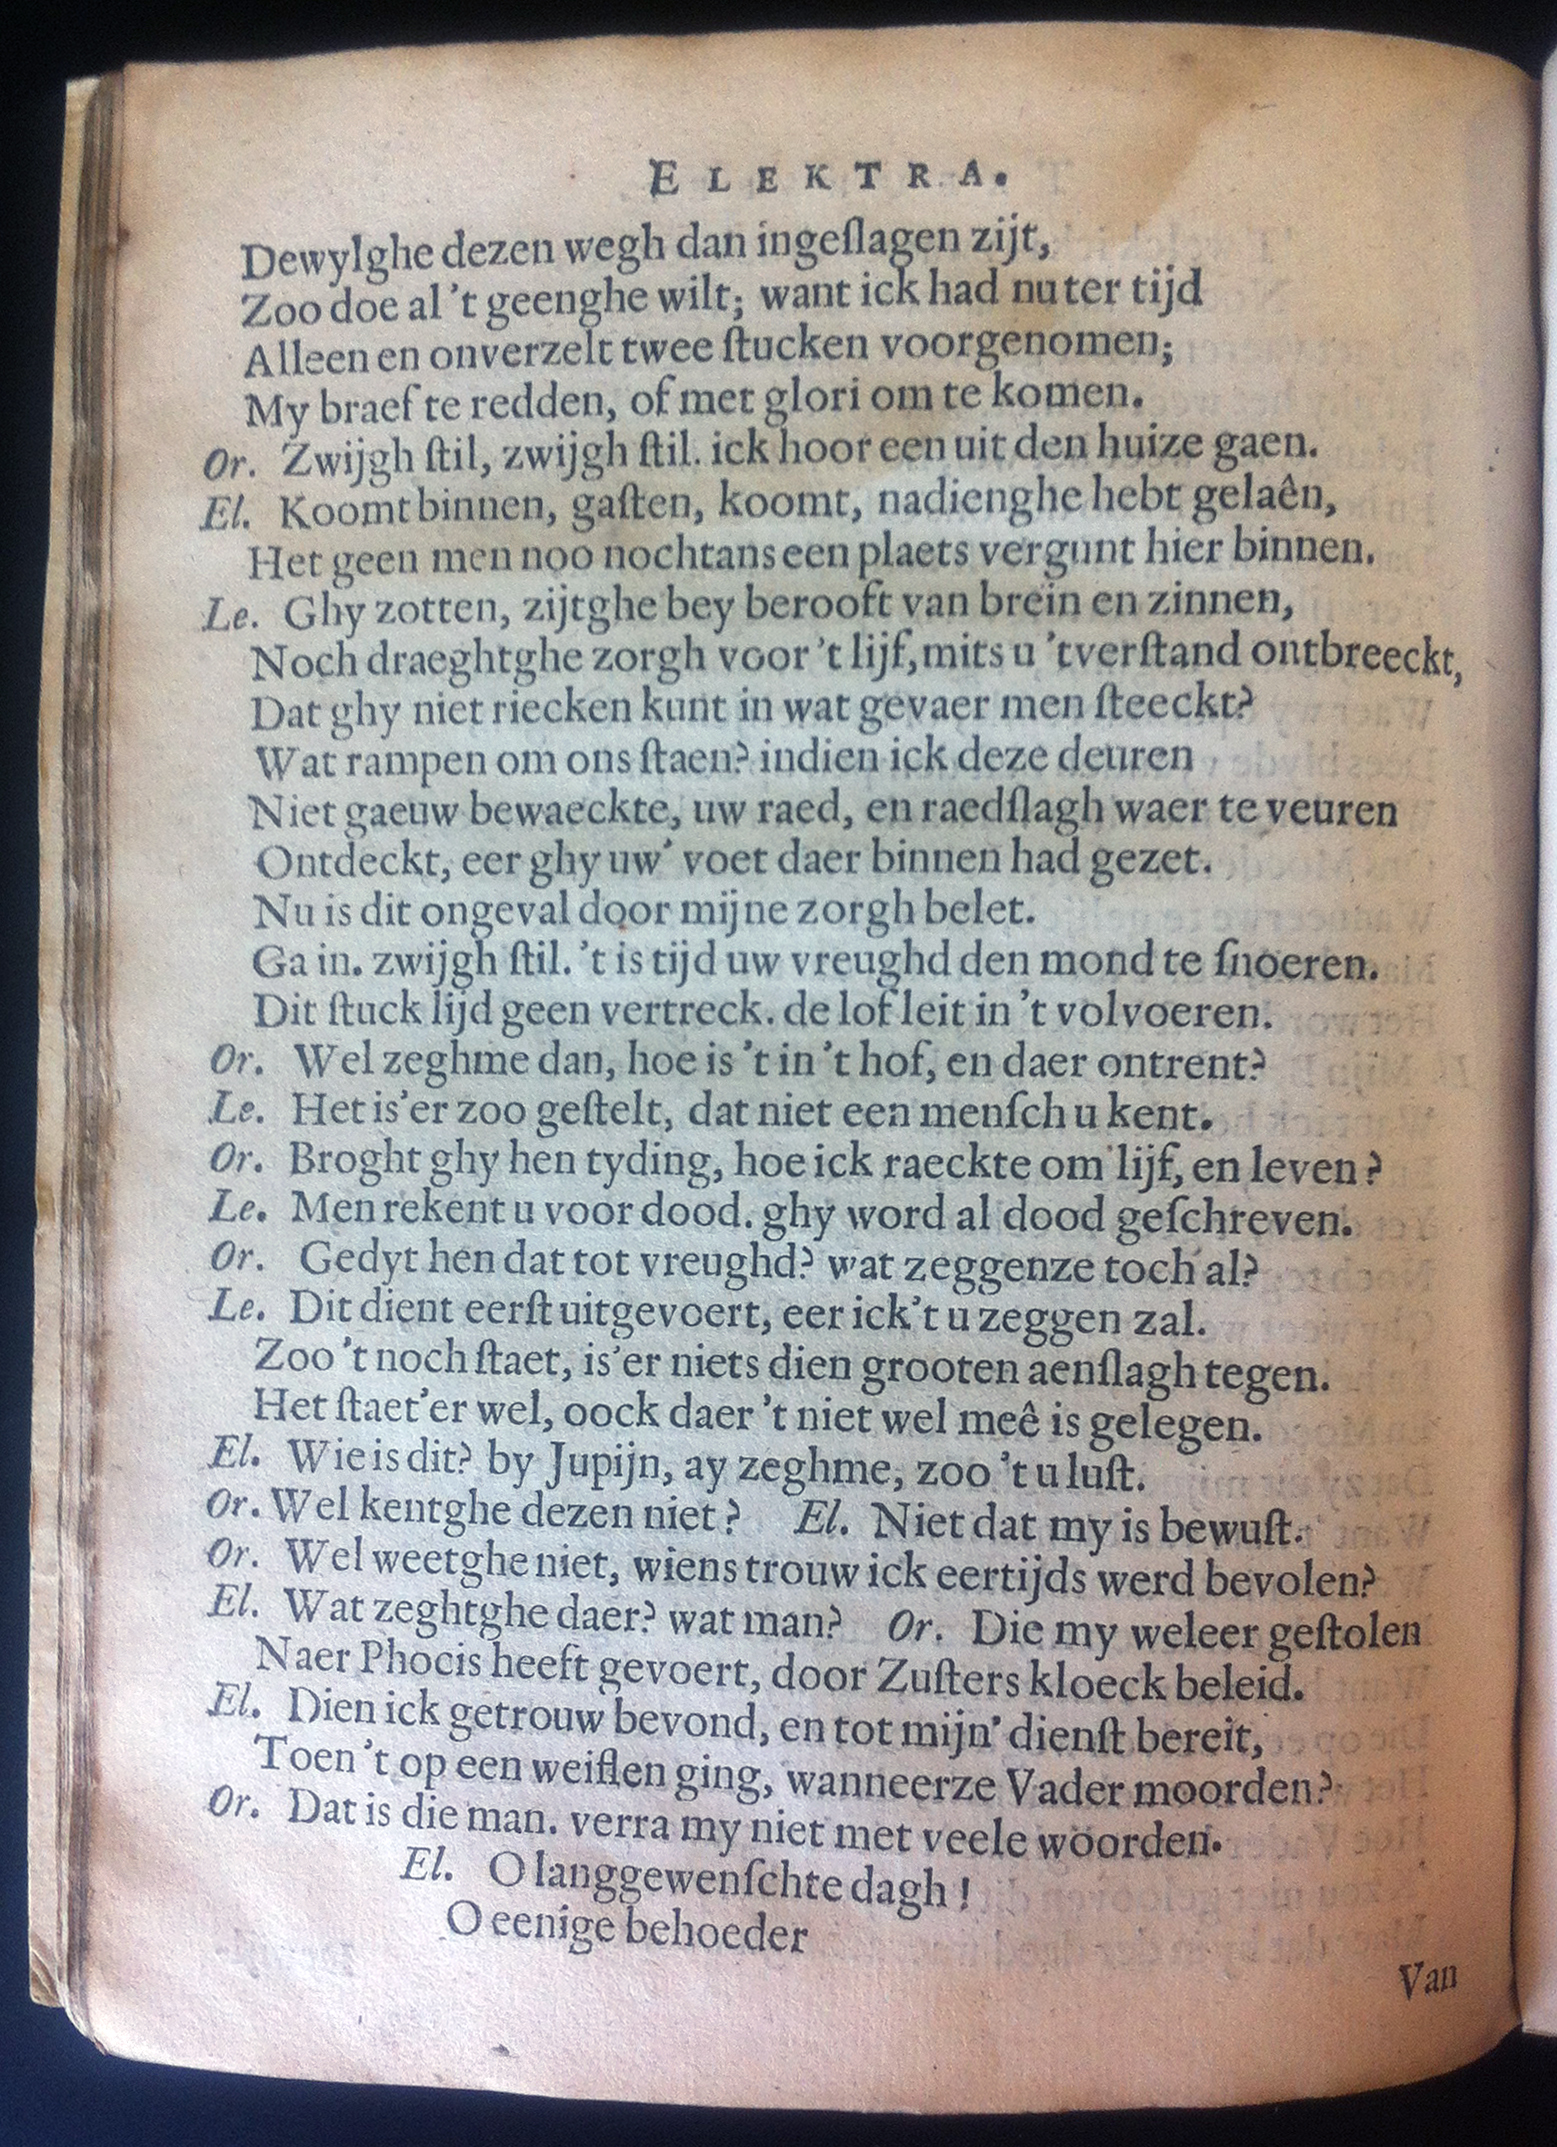 ELEKTRA.
Dewylghe dezen wegh dan ingeſlagen zijt,
Zoo doe al 't geenghe wilt; want ick had nu ter tijd
Alleen en onverzelt twee ſtucken voorgenomen;
My braef te redden, of met glori om te komen.
Or. Zwijgh ſtil, zwijgh ſtil. ick hoor een uit den huize gaen.
El. Koomt binnen, gaſten, koomt, nadienghe hebt gelaên,
Het geen men noo nochtans een plaets vergunt hier binnen.
Le. Ghy zotten, zijtghe bey berooft van brein en zinnen,
Noch draeghtghe zorgh voor 't lijf, mits u 'tverſtand ontbreeckt,
Dat ghy niet riecken kunt in wat gevaer men ſteeckt?
Wat rampen om ons ſtaen? indien ick deze deuren
Niet gaeuw bewaeckte, uw raed, en raedſlagh waer te veuren
Ontdeckt, eer ghy uw' voet daer binnen had gezet.
Nu is dit ongeval door mijne zorgh belet.
Ga in. zwijgh ſtil. 't is tijd uw vreughd den mond te ſnoeren.
Dit ſtuck lijd geen vertreck. de lof leit in 't volvoeren.
Or. Wel zeghme dan, hoe is 't in 't hof, en daer ontrent?
Le. Het is'er zoo geſtelt, dat niet een menſch u kent.
Or. Broght ghy hen tyding, hoe ick raeckte om lijf, en leven?
Le. Men rekent u voor dood. ghy word al dood geſchreven.
Or. Gedyt hen dat tot vreughd? wat zeggenze toch al?
Le. Dit dient eerſt uitgevoert, eer ick't u zeggen zal.
Zoo 't noch ſtaet, is'er niets dien grooten aenſlagh tegen.
Het ſtaet'er wel, oock daer 't niet wel meê is gelegen.
El. Wie is dit? by Jupijn, ay zeghme, zoo 't u luſt.
Or. Wel kentghe dezen niet? El. Niet dat my is bewuſt.
Or. Wel weetghe niet, wiens trouw ick eertijds werd bevolen?
El. Wat zeghtghe daer? wat man? Or. Die my weleer geſtolen
Naer Phocis heeft gevoert, door Zuſters kloeck beleid.
El. Dien ick getrouw bevond, en tot mijn' dienſt bereit,
Toen 't op een weiflen ging, wanneerze Vader moorden?
Or. Dat is die man. verra my niet met veele woorden.
El. O langgewenſchte dagh!
O eenige behoeder
Van